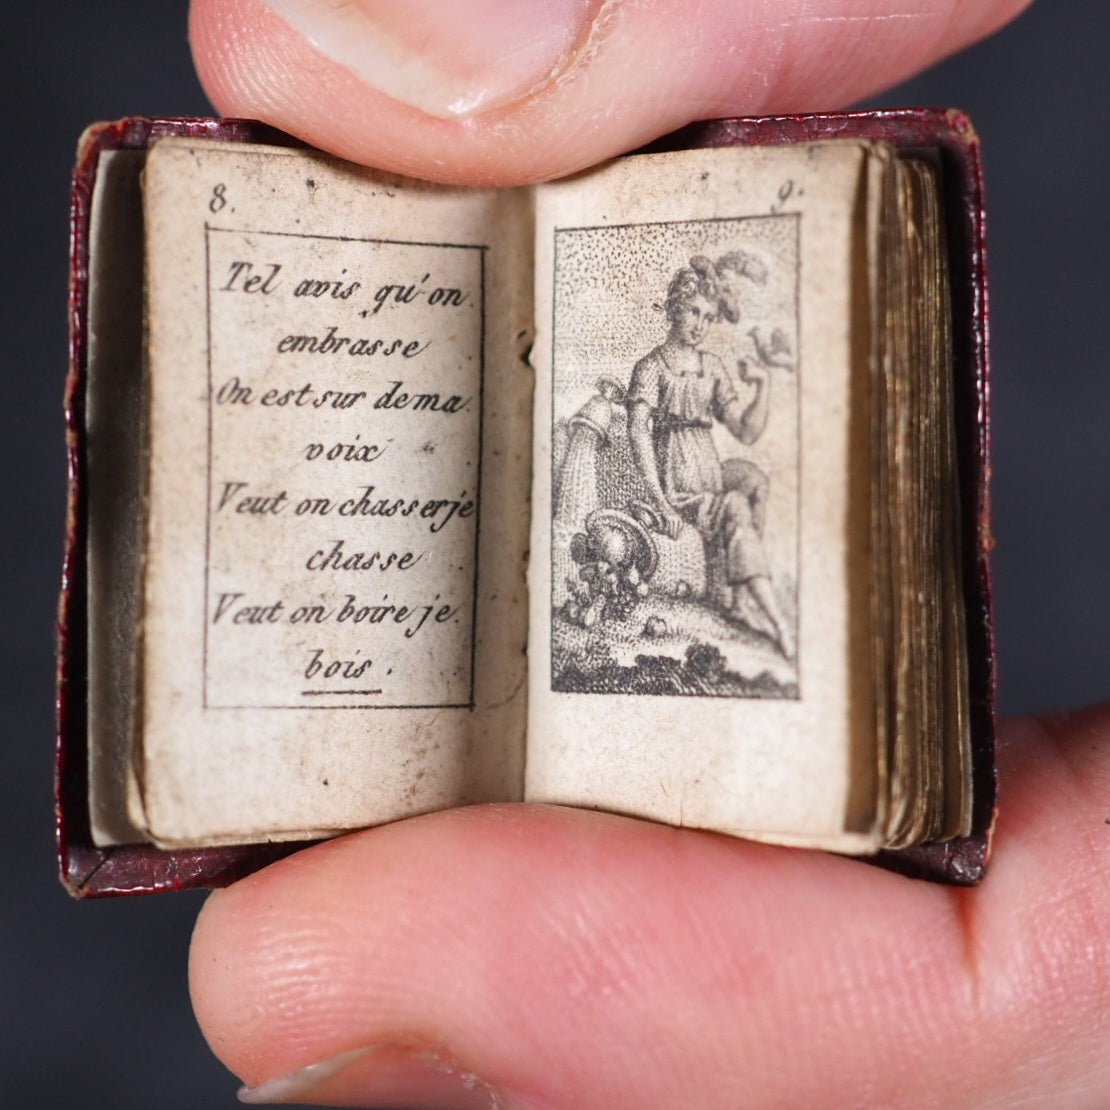 8.
Tel avis qu'on
embrasse
On est sur de ma
voix
Veut on chasser je
chasse
Veut on boire je
bois.
9.